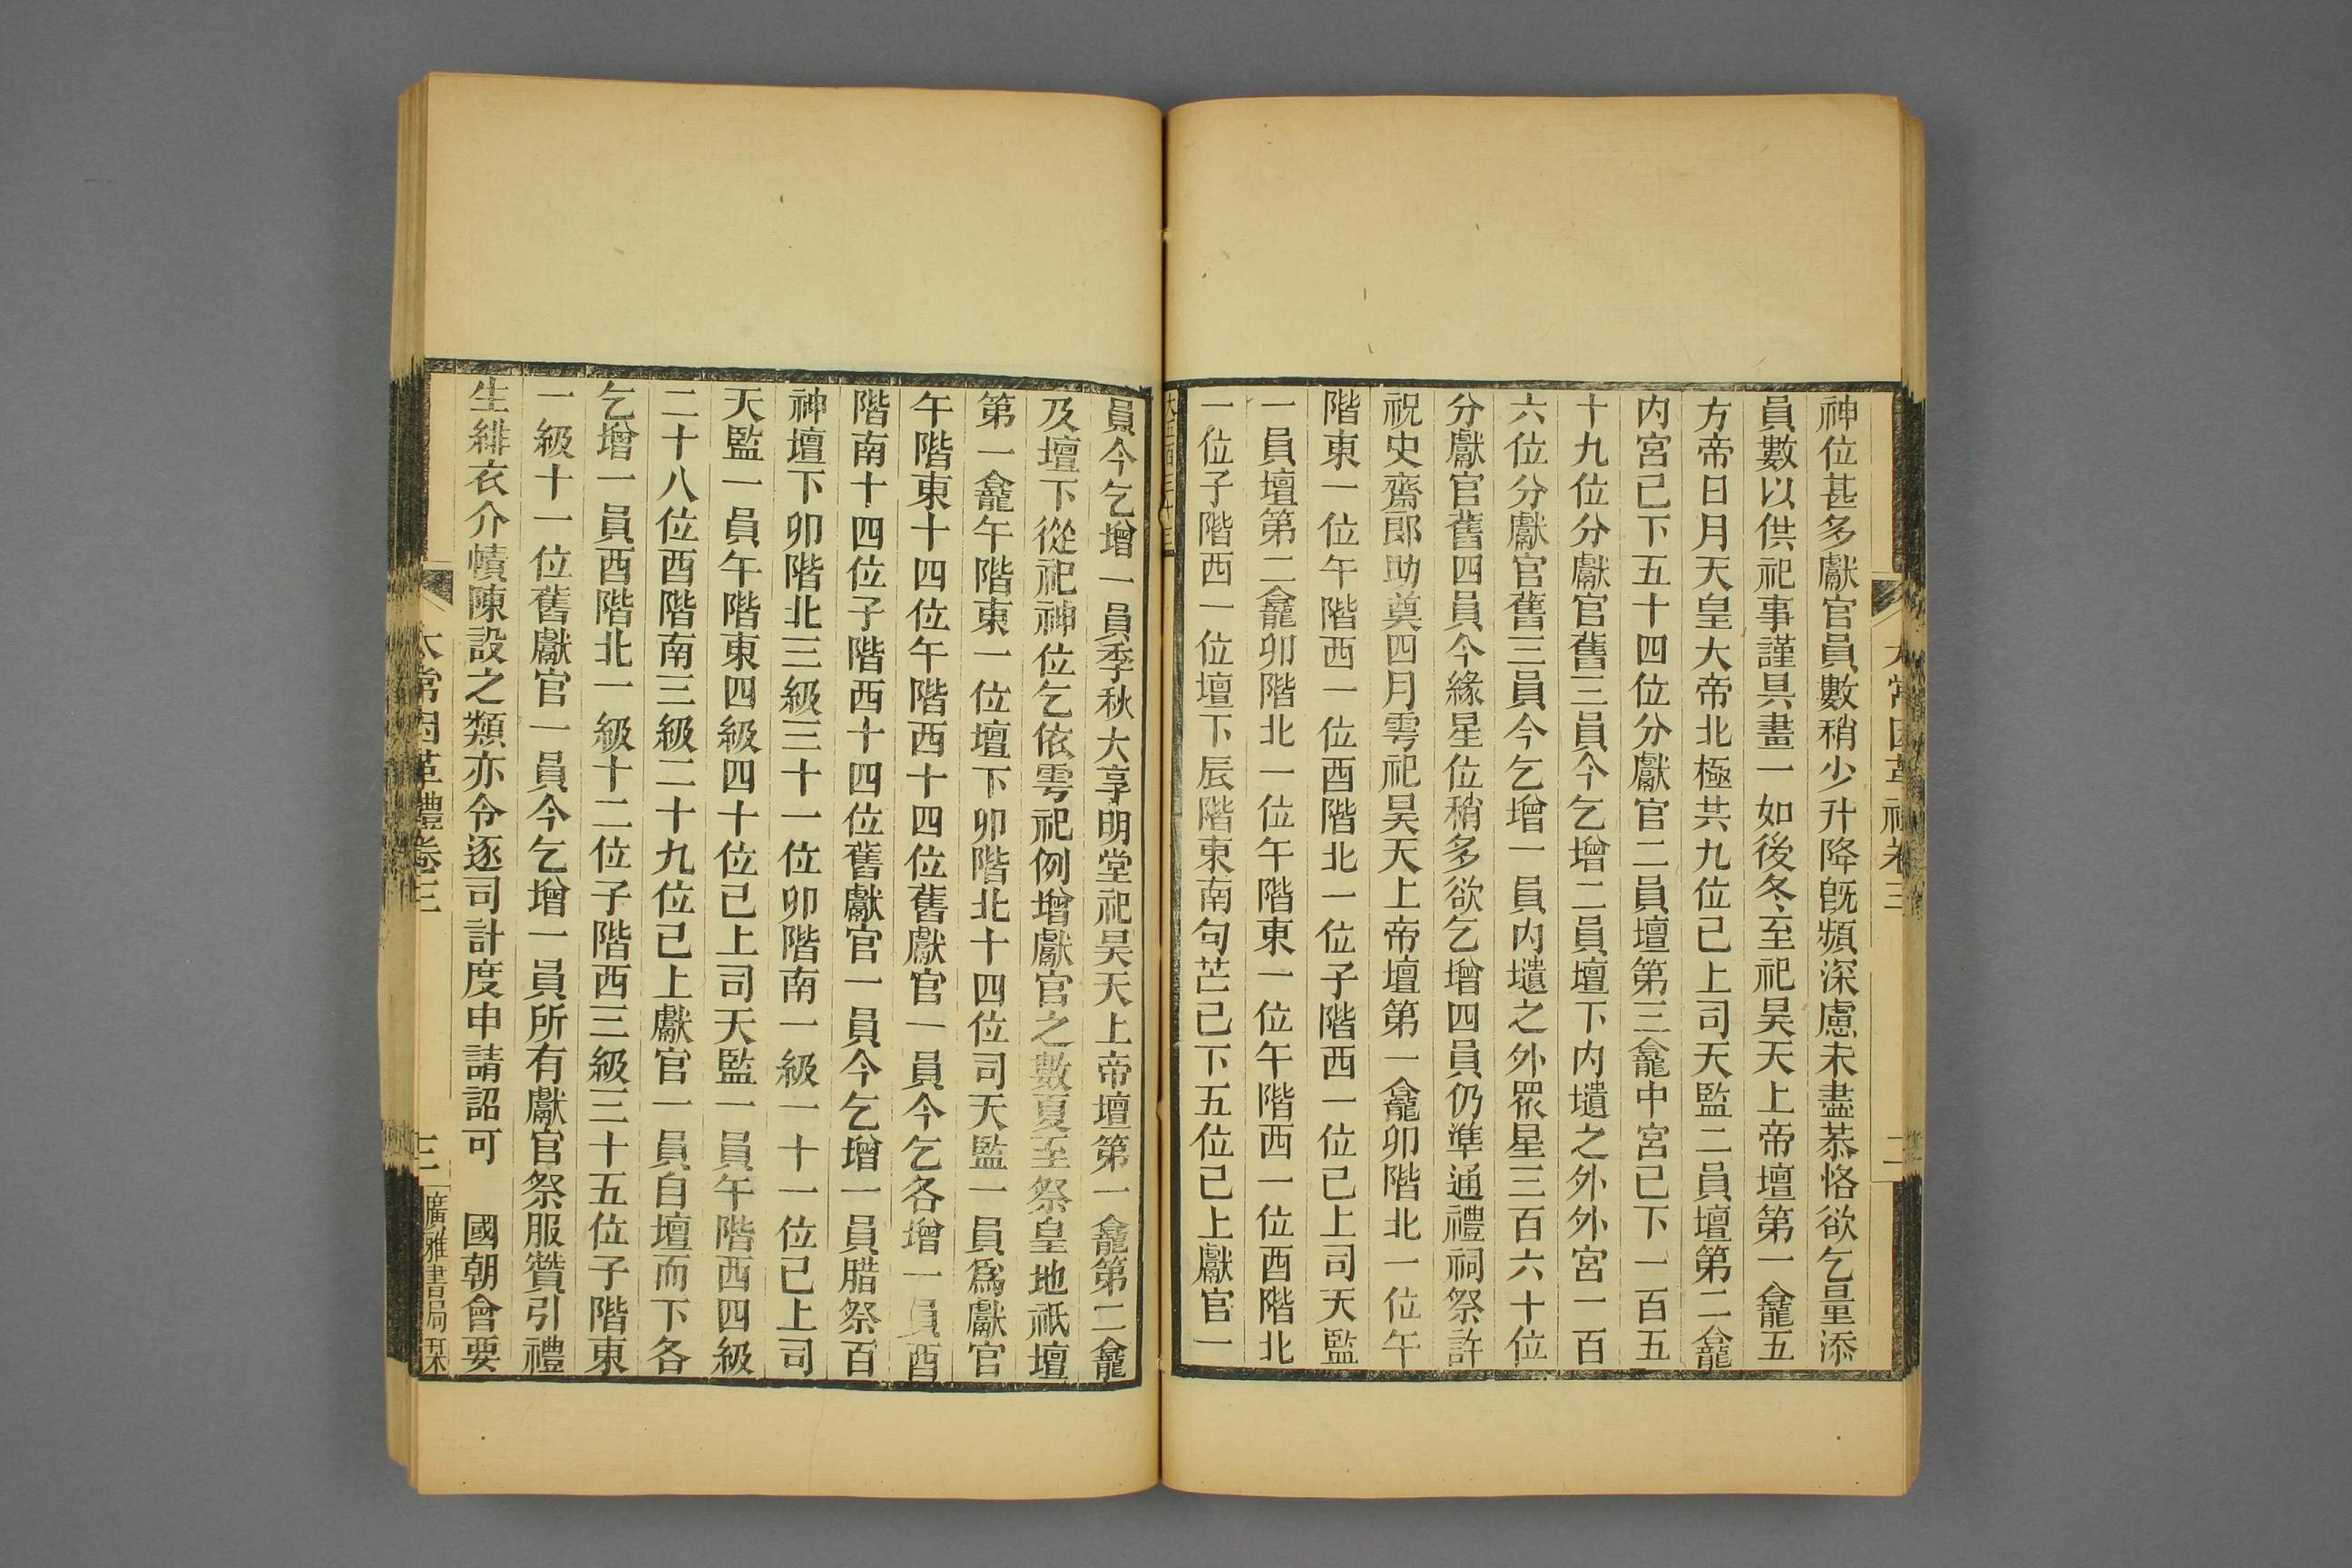 神位甚多獻官員數稍少升降旣頻深慮未盡恭恪欲乞量添
員數以供祀事謹具畫一如後冬至祀昊天上帝壇第一龕五
方帝日月天皇大帝北極共九位己上司天監二員壇第二龕
内宮己下五十四位分獻官二員壇第三龕中宮己下一百五
十九位分獻官舊三員今乞增二員壇下内壝之外外宮一百
六位分獻官舊三員今乞增一員内壝之外眾星三百六十位
分獻官舊四員今緣星位稍多欲乞增四員仍準通禮祠祭許
祝史齋郎助奠四月雩祀昊天上帝壇第一龕卯階北一位午
階東一位午階西一位酉階北一位子階西一位己上司天監
一員壇第二龕卯階北一位午階東一位午階西一位酉階北
一位子階西一位壇下辰階東南句芒己下五位己上獻官一
員今乞增一員季秋大享明堂祀昊天上帝壇第一龕第二龕
及壇下從祀神位乞依雩祀例增獻官之數夏至祭皇地祇壇
第一龕午階東一位壇下卯階北十四位司天監一員爲獻官
午階東十四位午階西十四位舊獻官一員今乞各增一員酉
階南十四位子階西十四位舊獻官一員今乞增一員腊祭百
神壇下卯階北三級三十一位卯階南一級一十一位己上司
天監一員午階東四級四十位己上司天監一員午階西四級
二十八位酉階南三級二十九位己上獻官一員自壇而下各
乞增一員酉階北一級十二位子階西三級三十五位子階東
一級十一位舊獻官一員今乞增一員所有獻官祭服贊引禮
生緋衣介幘陳設之類亦令逐司計度申請詔可　國朝會要
太常因革禮卷三
三
廣雅書局栞